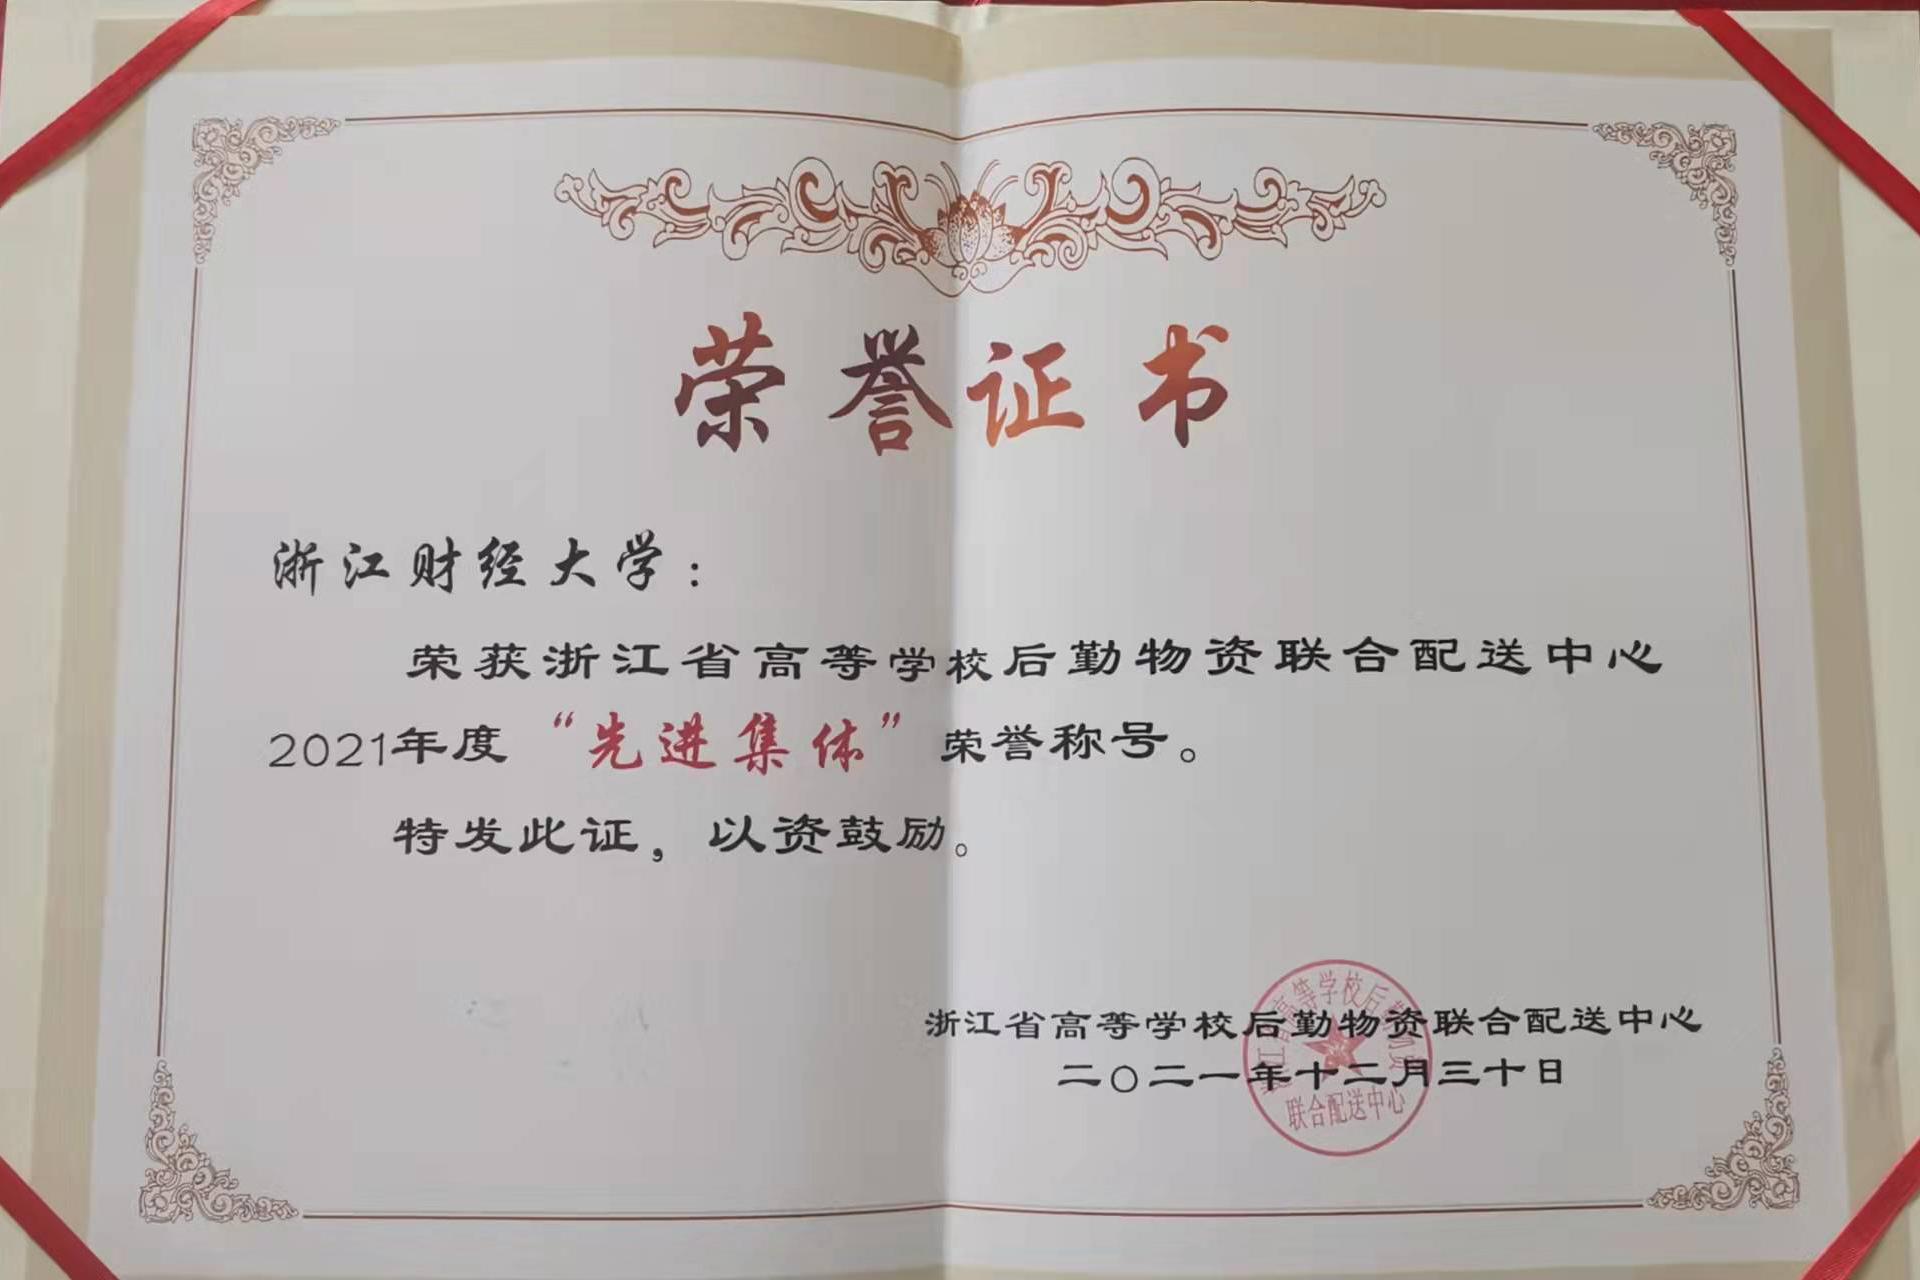 荣誉证书
浙江财经大学：
荣获浙江省高等学校后勤物资联合配送中心
2021年度“先进集体”荣誉称号。
特发此证，以资鼓励。
浙江省高等学校后勤物资联合配送中心
二〇二一年十二月三十日
浙江省高等学校后勤物资
联合配送中心